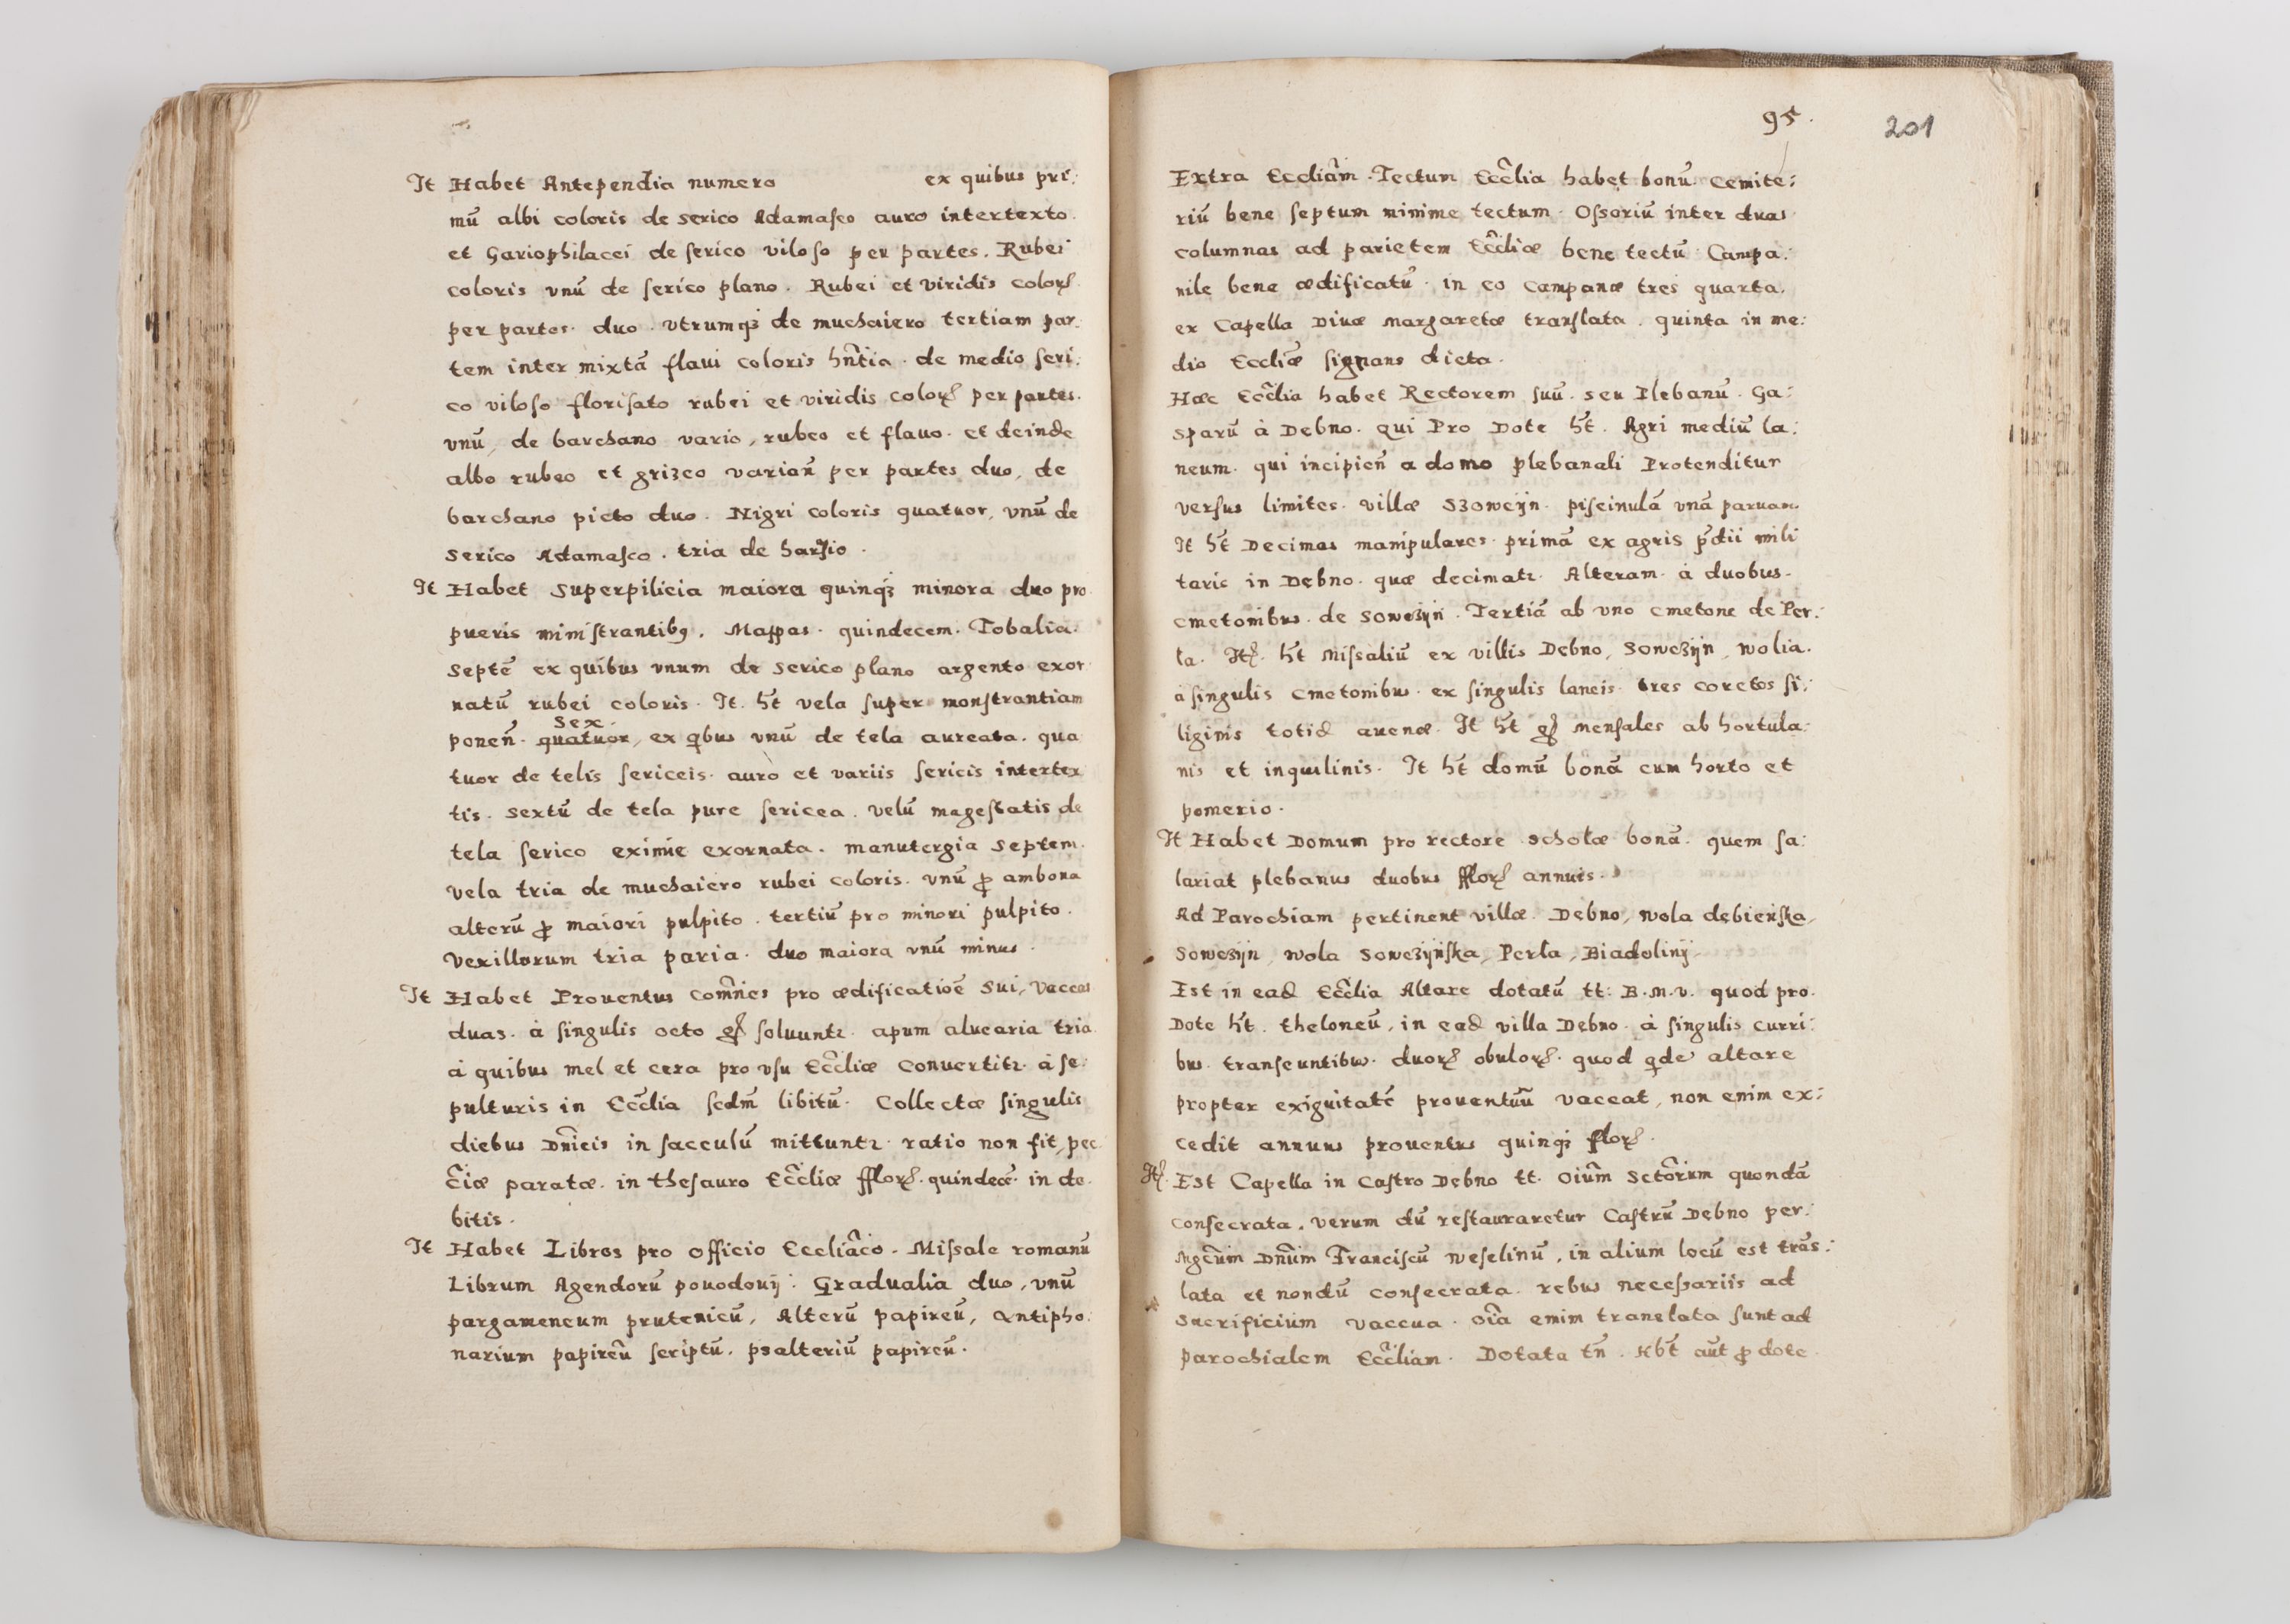 It Habet Antependia numero ex quibus pri:
mū albi coloris de serico Adamasco auro intertexto.
et Gariophilacei de serico viloso per partes. Rubei
coloris vnū de serico plano. Rubei et viridis colorꝝ
per partes. duo. vtrumqꝫ de muchaiero tertiam par:
tem inter mixtā flaui coloris hñtia. de medio seri:
co viloso florisato rubei et viridis colorꝝ per partes.
vnū, de barchano vario, rubeo et flauo. et deinde
albo rubeo et grizeo varian̄ per partes duo, de
barchano picto duo. Nigri coloris quatuor, vnū de
serico Adamasco. tria de harsio.
It Habet Superpilicia maiora quinqꝫ minora duo pro
pueris ministrantibꝯ. Mappas. quindecem. Tobalia.
septē ex quibus vnum de serico plano argento exor
natū rubei coloris. It. h̄t vela super monstrantiam
sex.
ponen̄. quatuor, ex qibus vnū de tela aureata. qua
tuor de telis sericeis. auro et variis sericis intertex
tis. sextū de tela pure sericea. velū magestatis de
tela serico eximie exornata. manutergia septem.
vela tria de muchaiero rubei coloris. vnū ꝓ ambona
alterū ꝓ maiori pulpito. tertiū pro minori pulpito.
Vexillorum tria paria. duo maiora vnū minus.
It Habet Prouentus com̄nes pro ædificatiōe sui, vaccas
duas. à singulis octo gꝝ soluuntr. apum aluearia tria
à quibus mel et cera pro vsu Ecc̄liæ conuertitr. à se:
pulturis in Ecc̄lia scdm̄ libitū. Collectæ singulis
diebus Dn̄icis in sacculū mittuntr. ratio non fit, pec
c̄iæ paratæ. in thesauro Ecc̄liæ fflorꝝ. quindecē. in de
bitis.
It Habet Libros pro officio Eccliāco. Missale romanū
Librum Agendorū pouodouij: Gradualia duo, vnū
pargameneum prutenicū, Alterū papireū, Antipho:
narium papireū scriptū. psalteriū papireū.
95.
201
Extra Eccliām. Tectum Ecc̄lia habet bonū. Cemite:
riū bene septum minime tectum. Ossoriū inter duas
columnas ad parietem Ecc̄liæ bene tectū. Campa:
nile bene ædificatū. in eo campanæ tres quarta.
ex Capella Diuæ Margaretæ translata. quinta in me:
dio Eccliǣ signans dicta.
Hæc Ecc̄lia habet Rectorem suū. seu Plebanū. Ga:
sparū à Dębno. qui Pro Dote h̄t. Agri mediū la:
neum. qui incipien̄ a domo plebanali Protenditur
versus limites. villæ Szoweijn. piscinulā vnā paruam.
It h̄t Decimas manipulares. primā ex agris p̄dii mili
taris in Dębno. quæ decimatr. Alteram. à duobus.
cmetonibus. de Sowczijn. Tertiā ab vno cmetone de Per:
la. Itꝫ. h̄t Missaliū ex villis Dębno, Sowczijn, Wolia.
à singulis cmetonibus. ex singulis laneis. tres coretos si:
liginis totid auenæ. It h̄t gꝝ mensales ab hortula:
nis et inquilinis. It h̄t domū bonā cum horto et
pomerio.
It Habet Domum pro rectore scholæ bonā. quem sa:
lariat plebanus duobus fflorꝝ annuis.
Ad Parochiam pertinent villæ. Dębno, Wola dębieńska,
Sowczijn, Wola Sowczijńska, Perła, Biadolinij
Est in ead Ecc̄lia Altare dotatū tt: B.M.V. quod pro.
Dote h̄t. theloneū, in ead villa Dębno. à singulis curri:
bus. transeuntibus. duorꝝ obulorꝝ. quod qde altare
propter exiguitatē prouentuū vaccat, non enim ex:
cedit annuus prouentus quinqꝫ florꝝ.
Itꝫ. Est Capella in Castro Dębno tt. Oiūm Sctōrum quondā
consecrata. verum dū restauraretur Castrū Dębno per:
Mgcūm Dnūm Franciscū Weselinū, in alium locū est trās:
lata et nondū consecrata. rebus necessariis ad
sacrificium vaccua. oīa enim translata sunt ad
parochialem Ecc̄liam. Dotata tn̄. Hb̄t aūt ꝓ dote